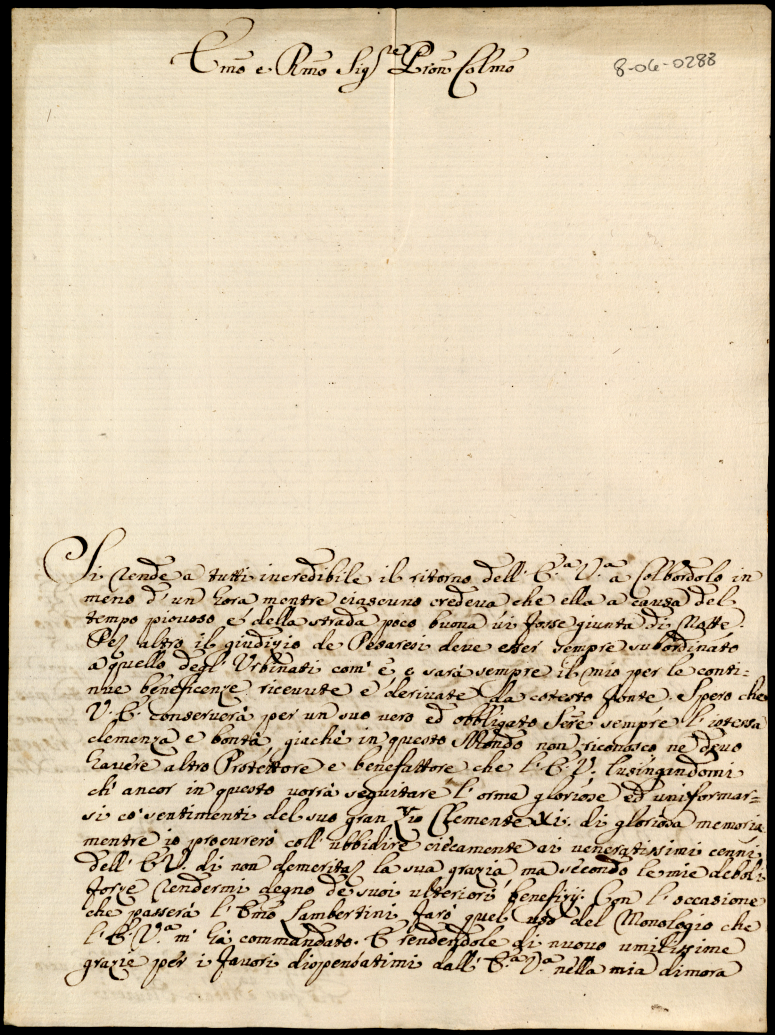 Emo e Rmo Sigre Pron Colmo
8-06-0288
Si rende a tutti incredibile il ritorno dell' E.a V.a a Colbordolo in
meno d'un hora mentre ciascuno credeva che ella a causa del
tempo piovoso e della strada poco buona vi fosse giunta di Notte.
Per altro il giudizio de Pesaresi deve esser sempre subordinato
a quello degl' Urbinati com' è, e sarà sempre il mio per le conti=
nue beneficenze ricevute e derivate da cotesto fonte. Spero che
V. E. conserverà per un suo vero ed obbligato Sere sempre l'istessa
clemenza e bontà, giache in questo Mondo non riconosco ne devo
havere altro Protettore e benefattore che l'E.V. lusingandomi
ch' ancor in questo vorrà seguitare l'orme gloriose ed uniformar=
si co' sentimenti del suo gran Zio Clemente XI. di gloriosa memoria
mentre io procurerò coll' ubbidire ciecamente ai veneratissimi cenni
dell' E.V. di non demeritar la sua grazia ma secondo le mie deboli
forze rendermi degno de suoi ulteriori benefizij. Con l'occasione
che passerà l'Emo Lambertini farò quel uso del Monologio che
l'E. V.a m' hà commandato. E rendendole di nuovo umilissime
grazie per i favori dispensatimi dall' E.a V.a nella mia dimora